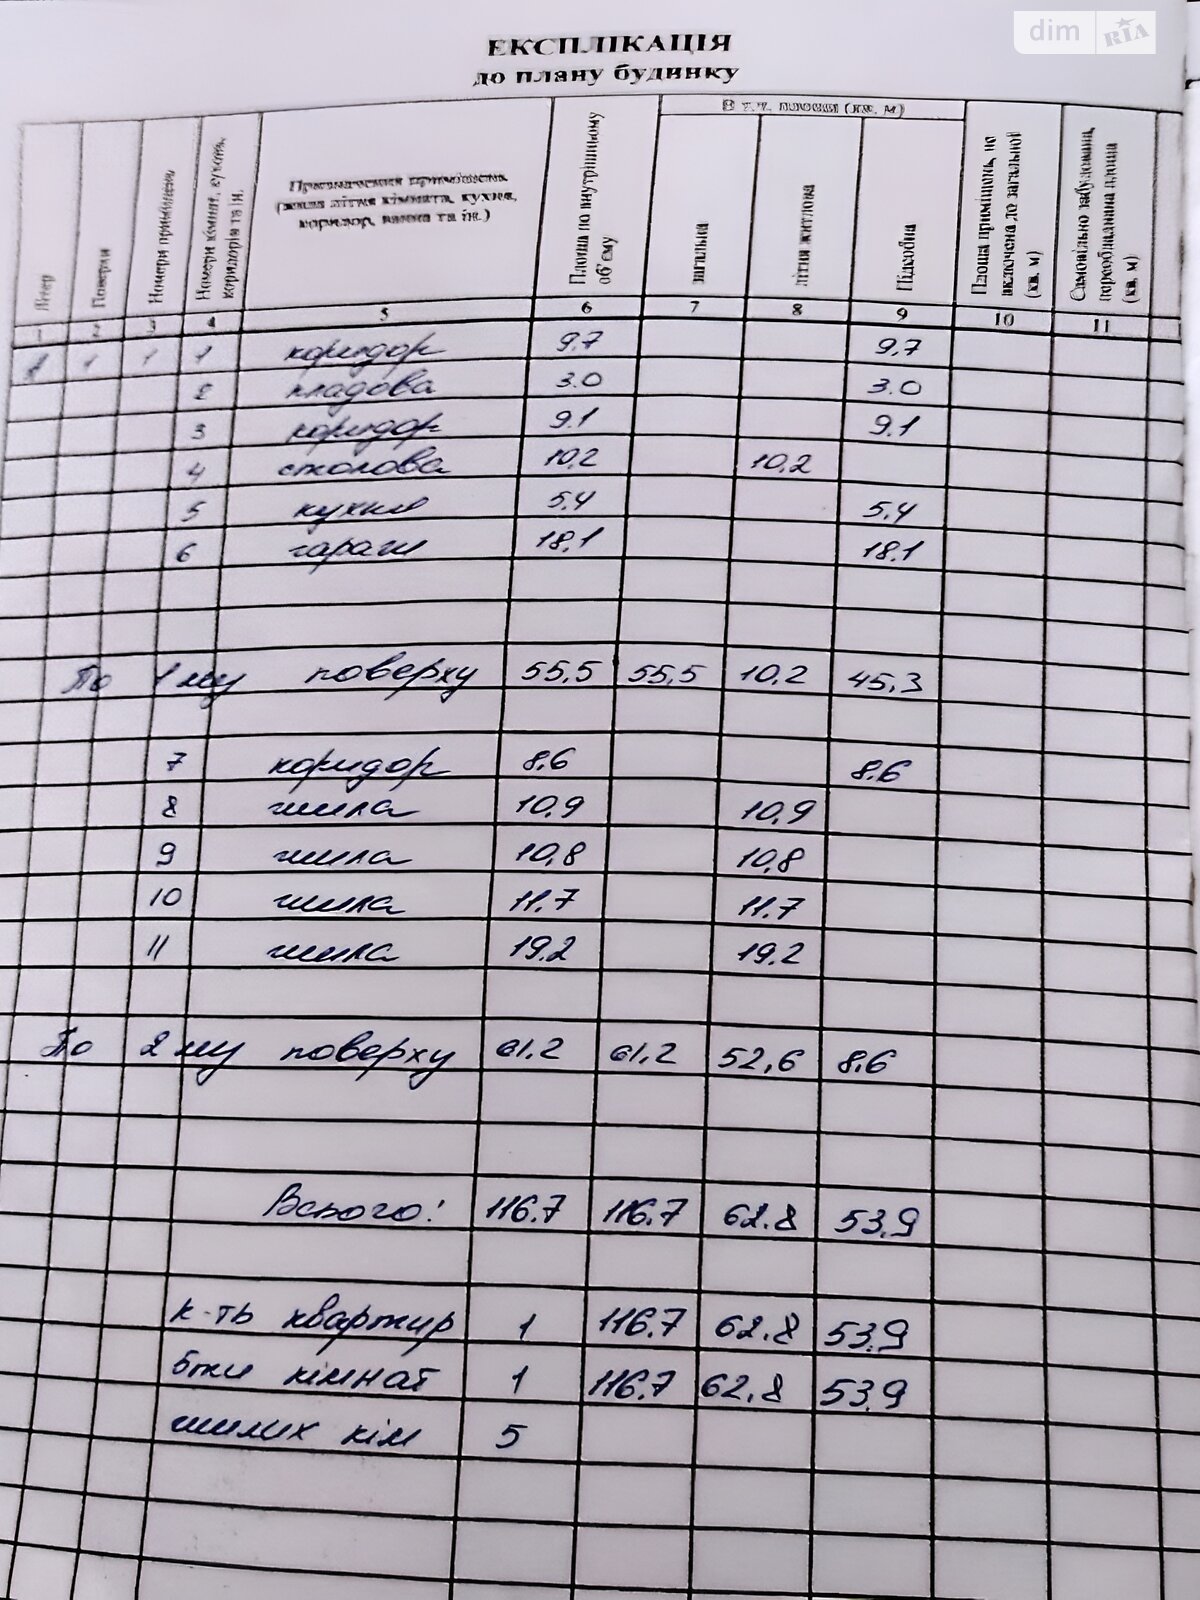 dim RIA
ЕКСПЛІКАЦІЯ
до плану будинку
Літер
Поверхи
Номери приміщень
Номери кімнат, кухонь, коридорів та ін.
Призначення приміщень
(жила літня кімната, кухня,
коридор, ванна та ін.)
Площа по внутрішньому об'єму
В т.ч. площі (кв. м)
загальна
літня житлова
Підсобна
Площа приміщень, не включена до загальної (кв. м)
Самовільно забудована, переобладнана площа (кв. м)
1 2 3 4 5 6 7 8 9 10 11
1 1 1 коридор 9.7 9.7
2 кладова 3.0 3.0
3 коридор 9.1 9.1
4 столова 10,2 10,2
5 кухня 5,4 5,4
6 гараж 18,1 18.1
По 1 му поверху 55,5 55,5 10,2 45,3
7 коридор 8,6 8,6
8 жила 10,9 10,9
9 жила 10,8 10,8
10 жила 11.7 11.7
11 жила 19.2 19.2
По 2 му поверху 61.2 61.2 52,6 8.6
Всього: 116.7 116.7 62.8 53.9
к-ть квартир 1 116.7 62.8 53.9
5ти кімнат 1 116.7 62,8 53.9
жилих кім 5